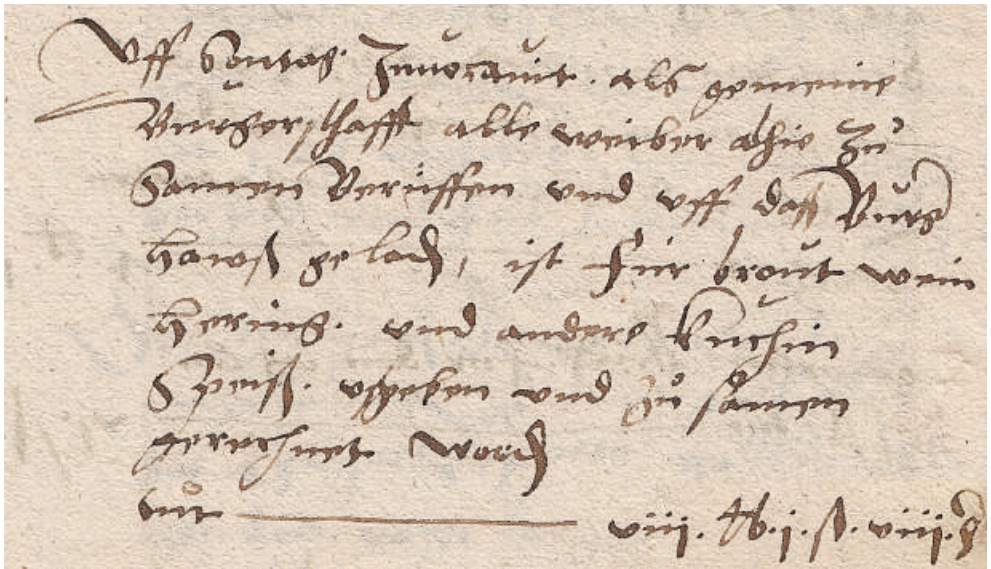 Uff Sontag. Invocavit. als gemeine
Burgerschafft alle weiber alhie zů
Samen Berůffen und uff daß Burg
hawß geladen, ist Fur brout wein
hering. und andere kuchin
Speiß. ußgeben und zů samen
gerechnet worden
viii. lb. j. ß. viij. d